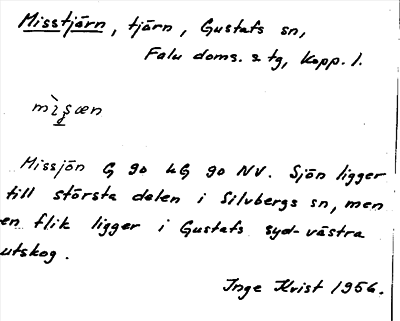 Misstjärn, tjärn, Gustafs sn,
Falu doms. & tg, Kopp. l.
mìsæn
Missjön G 90 LG 90 NV. Sjön ligger
till största delen i Silvbergs sn, men
en flik ligger i Gustafs syd-västra
utskog.
Inge Kvist 1956.